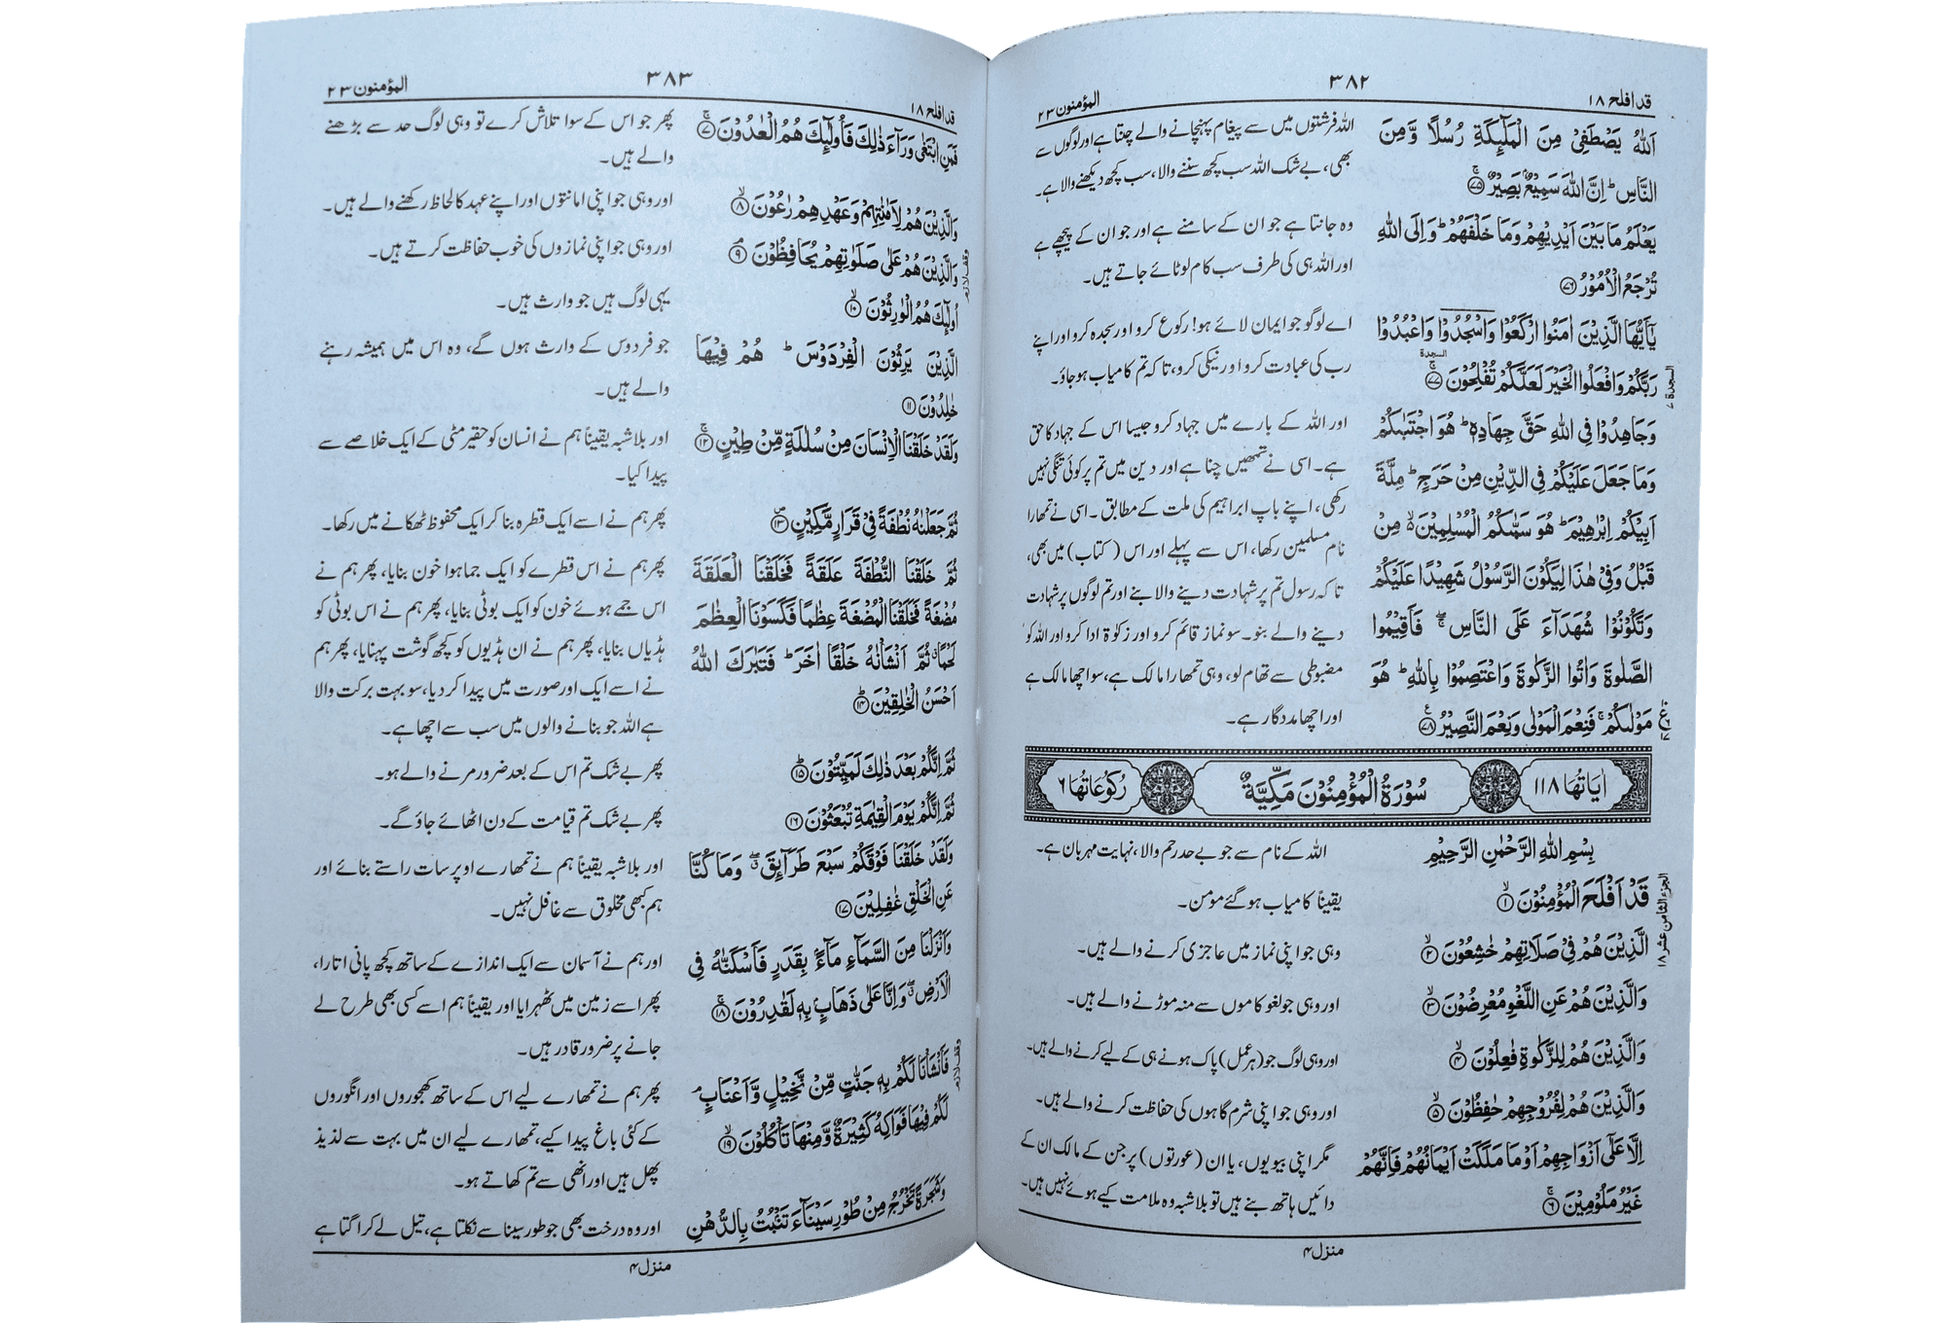 قد افلح ۱۸
۳۸۲
المؤمنون ۲۳
اَللّٰهُ يَصْطَفِيْ مِنَ الْمَلٰٓىِٕكَةِ رُسُلًا وَّمِنَ
النَّاسِ ؕ اِنَّ اللّٰهَ سَمِيْعٌۢ بَصِيْرٌ ۚ۝۷۵
يَعْلَمُ مَا بَيْنَ اَيْدِيْهِمْ وَمَا خَلْفَهُمْ ؕ وَاِلَى اللّٰهِ
تُرْجَعُ الْاُمُوْرُ ۝۷۶
يٰٓاَيُّهَا الَّذِيْنَ اٰمَنُوا ارْكَعُوْا وَاسْجُدُوْا وَاعْبُدُوْا
رَبَّكُمْ وَافْعَلُوا الْخَيْرَ لَعَلَّكُمْ تُفْلِحُوْنَ ۚ۝۷۷
السجدة
السجدة ۷
وَجَاهِدُوْا فِي اللّٰهِ حَقَّ جِهَادِهٖ ؕ هُوَ اجْتَبٰىكُمْ
وَمَا جَعَلَ عَلَيْكُمْ فِي الدِّيْنِ مِنْ حَرَجٍ ؕ مِلَّةَ
اَبِيْكُمْ اِبْرٰهِيْمَ ؕ هُوَ سَمّٰىكُمُ الْمُسْلِمِيْنَ ۙ۬ مِنْ
قَبْلُ وَفِيْ هٰذَا لِيَكُوْنَ الرَّسُوْلُ شَهِيْدًا عَلَيْكُمْ
وَتَكُوْنُوْا شُهَدَآءَ عَلَى النَّاسِ ۖۚ فَاَقِيْمُوا
الصَّلٰوةَ وَاٰتُوا الزَّكٰوةَ وَاعْتَصِمُوْا بِاللّٰهِ ؕ هُوَ
مَوْلٰىكُمْ ۚ فَنِعْمَ الْمَوْلٰى وَنِعْمَ النَّصِيْرُ ۝۷۸
اللہ فرشتوں میں سے پیغام پہنچانے والے چنتا ہے اور لوگوں سے
بھی، بے شک اللہ سب کچھ سننے والا، سب کچھ دیکھنے والا ہے۔
وہ جانتا ہے جو ان کے سامنے ہے اور جو ان کے پیچھے ہے
اور اللہ ہی کی طرف سب کام لوٹائے جاتے ہیں۔
اے لوگو جو ایمان لائے ہو! رکوع کرو اور سجدہ کرو اور اپنے
رب کی عبادت کرو اور نیکی کرو، تاکہ تم کامیاب ہو جاؤ۔
اور اللہ کے بارے میں جہاد کرو جیسا اس کے جہاد کا حق
ہے۔ اسی نے تمھیں چنا ہے اور دین میں تم پر کوئی تنگی نہیں
رکھی، اپنے باپ ابراہیم کی ملت کے مطابق۔ اسی نے تمھارا
نام مسلمین رکھا، اس سے پہلے اور اس (کتاب) میں بھی،
تاکہ رسول تم پر شہادت دینے والا بنے اور تم لوگوں پر شہادت
دینے والے بنو۔ سو نماز قائم کرو اور زکوٰۃ ادا کرو اور اللہ کو
مضبوطی سے تھام لو، وہی تمھارا مالک ہے، سو اچھا مالک ہے
اور اچھا مددگار ہے۔
اٰيَاتُهَا ۱۱۸ سُوْرَةُ الْمُؤْمِنُوْنَ مَكِّيَّةٌ رُكُوْعَاتُهَا ۶
بِسْمِ اللّٰهِ الرَّحْمٰنِ الرَّحِيْمِ
الجزء الثامن عشر ۱۸
قَدْ اَفْلَحَ الْمُؤْمِنُوْنَ ۙ۝۱
الَّذِيْنَ هُمْ فِيْ صَلَاتِهِمْ خٰشِعُوْنَ ۙ۝۲
وَالَّذِيْنَ هُمْ عَنِ اللَّغْوِ مُعْرِضُوْنَ ۙ۝۳
وَالَّذِيْنَ هُمْ لِلزَّكٰوةِ فٰعِلُوْنَ ۙ۝۴
وَالَّذِيْنَ هُمْ لِفُرُوْجِهِمْ حٰفِظُوْنَ ۙ۝۵
اِلَّا عَلٰٓى اَزْوَاجِهِمْ اَوْ مَا مَلَكَتْ اَيْمَانُهُمْ فَاِنَّهُمْ
غَيْرُ مَلُوْمِيْنَ ۚ۝۶
اللہ کے نام سے جو بے حد رحم والا، نہایت مہربان ہے۔
یقیناً کامیاب ہو گئے مومن۔
وہی جو اپنی نماز میں عاجزی کرنے والے ہیں۔
اور وہی جو لغو کاموں سے منہ موڑنے والے ہیں۔
اور وہی لوگ جو (ہر عمل) پاک ہونے ہی کے لیے کرنے والے ہیں۔
اور وہی جو اپنی شرم گاہوں کی حفاظت کرنے والے ہیں۔
مگر اپنی بیویوں، یا ان (عورتوں) پر جن کے مالک ان کے
دائیں ہاتھ بنے ہیں تو بلاشبہ وہ ملامت کیے ہوئے نہیں ہیں۔
منزل ۴
قد افلح ۱۸
۳۸۳
المؤمنون ۲۳
فَمَنِ ابْتَغٰى وَرَآءَ ذٰلِكَ فَاُولٰٓىِٕكَ هُمُ الْعٰدُوْنَ ۚ۝۷
وَالَّذِيْنَ هُمْ لِاَمٰنٰتِهِمْ وَعَهْدِهِمْ رٰعُوْنَ ۙ۝۸
وَالَّذِيْنَ هُمْ عَلٰى صَلَوٰتِهِمْ يُحَافِظُوْنَ ۘ۝۹
وقف لازم
اُولٰٓىِٕكَ هُمُ الْوٰرِثُوْنَ ۙ۝۱۰
الَّذِيْنَ يَرِثُوْنَ الْفِرْدَوْسَ ؕ هُمْ فِيْهَا
خٰلِدُوْنَ ۝۱۱
وَلَقَدْ خَلَقْنَا الْاِنْسَانَ مِنْ سُلٰلَةٍ مِّنْ طِيْنٍ ۚ۝۱۲
ثُمَّ جَعَلْنٰهُ نُطْفَةً فِيْ قَرَارٍ مَّكِيْنٍ ۪۝۱۳
ثُمَّ خَلَقْنَا النُّطْفَةَ عَلَقَةً فَخَلَقْنَا الْعَلَقَةَ
مُضْغَةً فَخَلَقْنَا الْمُضْغَةَ عِظٰمًا فَكَسَوْنَا الْعِظٰمَ
لَحْمًا ۗ ثُمَّ اَنْشَاْنٰهُ خَلْقًا اٰخَرَ ؕ فَتَبٰرَكَ اللّٰهُ
اَحْسَنُ الْخٰلِقِيْنَ ؕ۝۱۴
ثُمَّ اِنَّكُمْ بَعْدَ ذٰلِكَ لَمَيِّتُوْنَ ؕ۝۱۵
ثُمَّ اِنَّكُمْ يَوْمَ الْقِيٰمَةِ تُبْعَثُوْنَ ۝۱۶
وَلَقَدْ خَلَقْنَا فَوْقَكُمْ سَبْعَ طَرَآىِٕقَ ۖۗ وَمَا كُنَّا
عَنِ الْخَلْقِ غٰفِلِيْنَ ۝۱۷
وَاَنْزَلْنَا مِنَ السَّمَآءِ مَآءًۢ بِقَدَرٍ فَاَسْكَنّٰهُ فِي
الْاَرْضِ ۖۗ وَاِنَّا عَلٰى ذَهَابٍۭ بِهٖ لَقٰدِرُوْنَ ۚ۝۱۸
فَاَنْشَاْنَا لَكُمْ بِهٖ جَنّٰتٍ مِّنْ نَّخِيْلٍ وَّاَعْنَابٍ ۘ
وقف لازم
لَكُمْ فِيْهَا فَوَاكِهُ كَثِيْرَةٌ وَّمِنْهَا تَاْكُلُوْنَ ۙ۝۱۹
وَشَجَرَةً تَخْرُجُ مِنْ طُوْرِ سَيْنَآءَ تَنْۢبُتُ بِالدُّهْنِ
پھر جو اس کے سوا تلاش کرے تو وہی لوگ حد سے بڑھنے
والے ہیں۔
اور وہی جو اپنی امانتوں اور اپنے عہد کا لحاظ رکھنے والے ہیں۔
اور وہی جو اپنی نمازوں کی خوب حفاظت کرتے ہیں۔
یہی لوگ ہیں جو وارث ہیں۔
جو فردوس کے وارث ہوں گے، وہ اس میں ہمیشہ رہنے
والے ہیں۔
اور بلاشبہ یقیناً ہم نے انسان کو حقیر مٹی کے ایک خلاصے سے
پیدا کیا۔
پھر ہم نے اسے ایک قطرہ بنا کر ایک محفوظ ٹھکانے میں رکھا۔
پھر ہم نے اس قطرے کو ایک جما ہوا خون بنایا، پھر ہم نے
اس جمے ہوئے خون کو ایک بوٹی بنایا، پھر ہم نے اس بوٹی کو
ہڈیاں بنایا، پھر ہم نے ان ہڈیوں کو کچھ گوشت پہنایا، پھر ہم
نے اسے ایک اور صورت میں پیدا کر دیا، سو بہت برکت والا
ہے اللہ جو بنانے والوں میں سب سے اچھا ہے۔
پھر بے شک تم اس کے بعد ضرور مرنے والے ہو۔
پھر بے شک تم قیامت کے دن اٹھائے جاؤ گے۔
اور بلاشبہ یقیناً ہم نے تمھارے اوپر سات راستے بنائے اور
ہم کبھی مخلوق سے غافل نہیں۔
اور ہم نے آسمان سے ایک اندازے کے ساتھ کچھ پانی اتارا،
پھر اسے زمین میں ٹھہرایا اور یقیناً ہم اسے کسی بھی طرح لے
جانے پر ضرور قادر ہیں۔
پھر ہم نے تمھارے لیے اس کے ساتھ کھجوروں اور انگوروں
کے کئی باغ پیدا کیے، تمھارے لیے ان میں بہت سے لذیذ
پھل ہیں اور انھی سے تم کھاتے ہو۔
اور وہ درخت بھی جو طور سینا سے نکلتا ہے، تیل لے کر اگتا ہے
منزل ۴